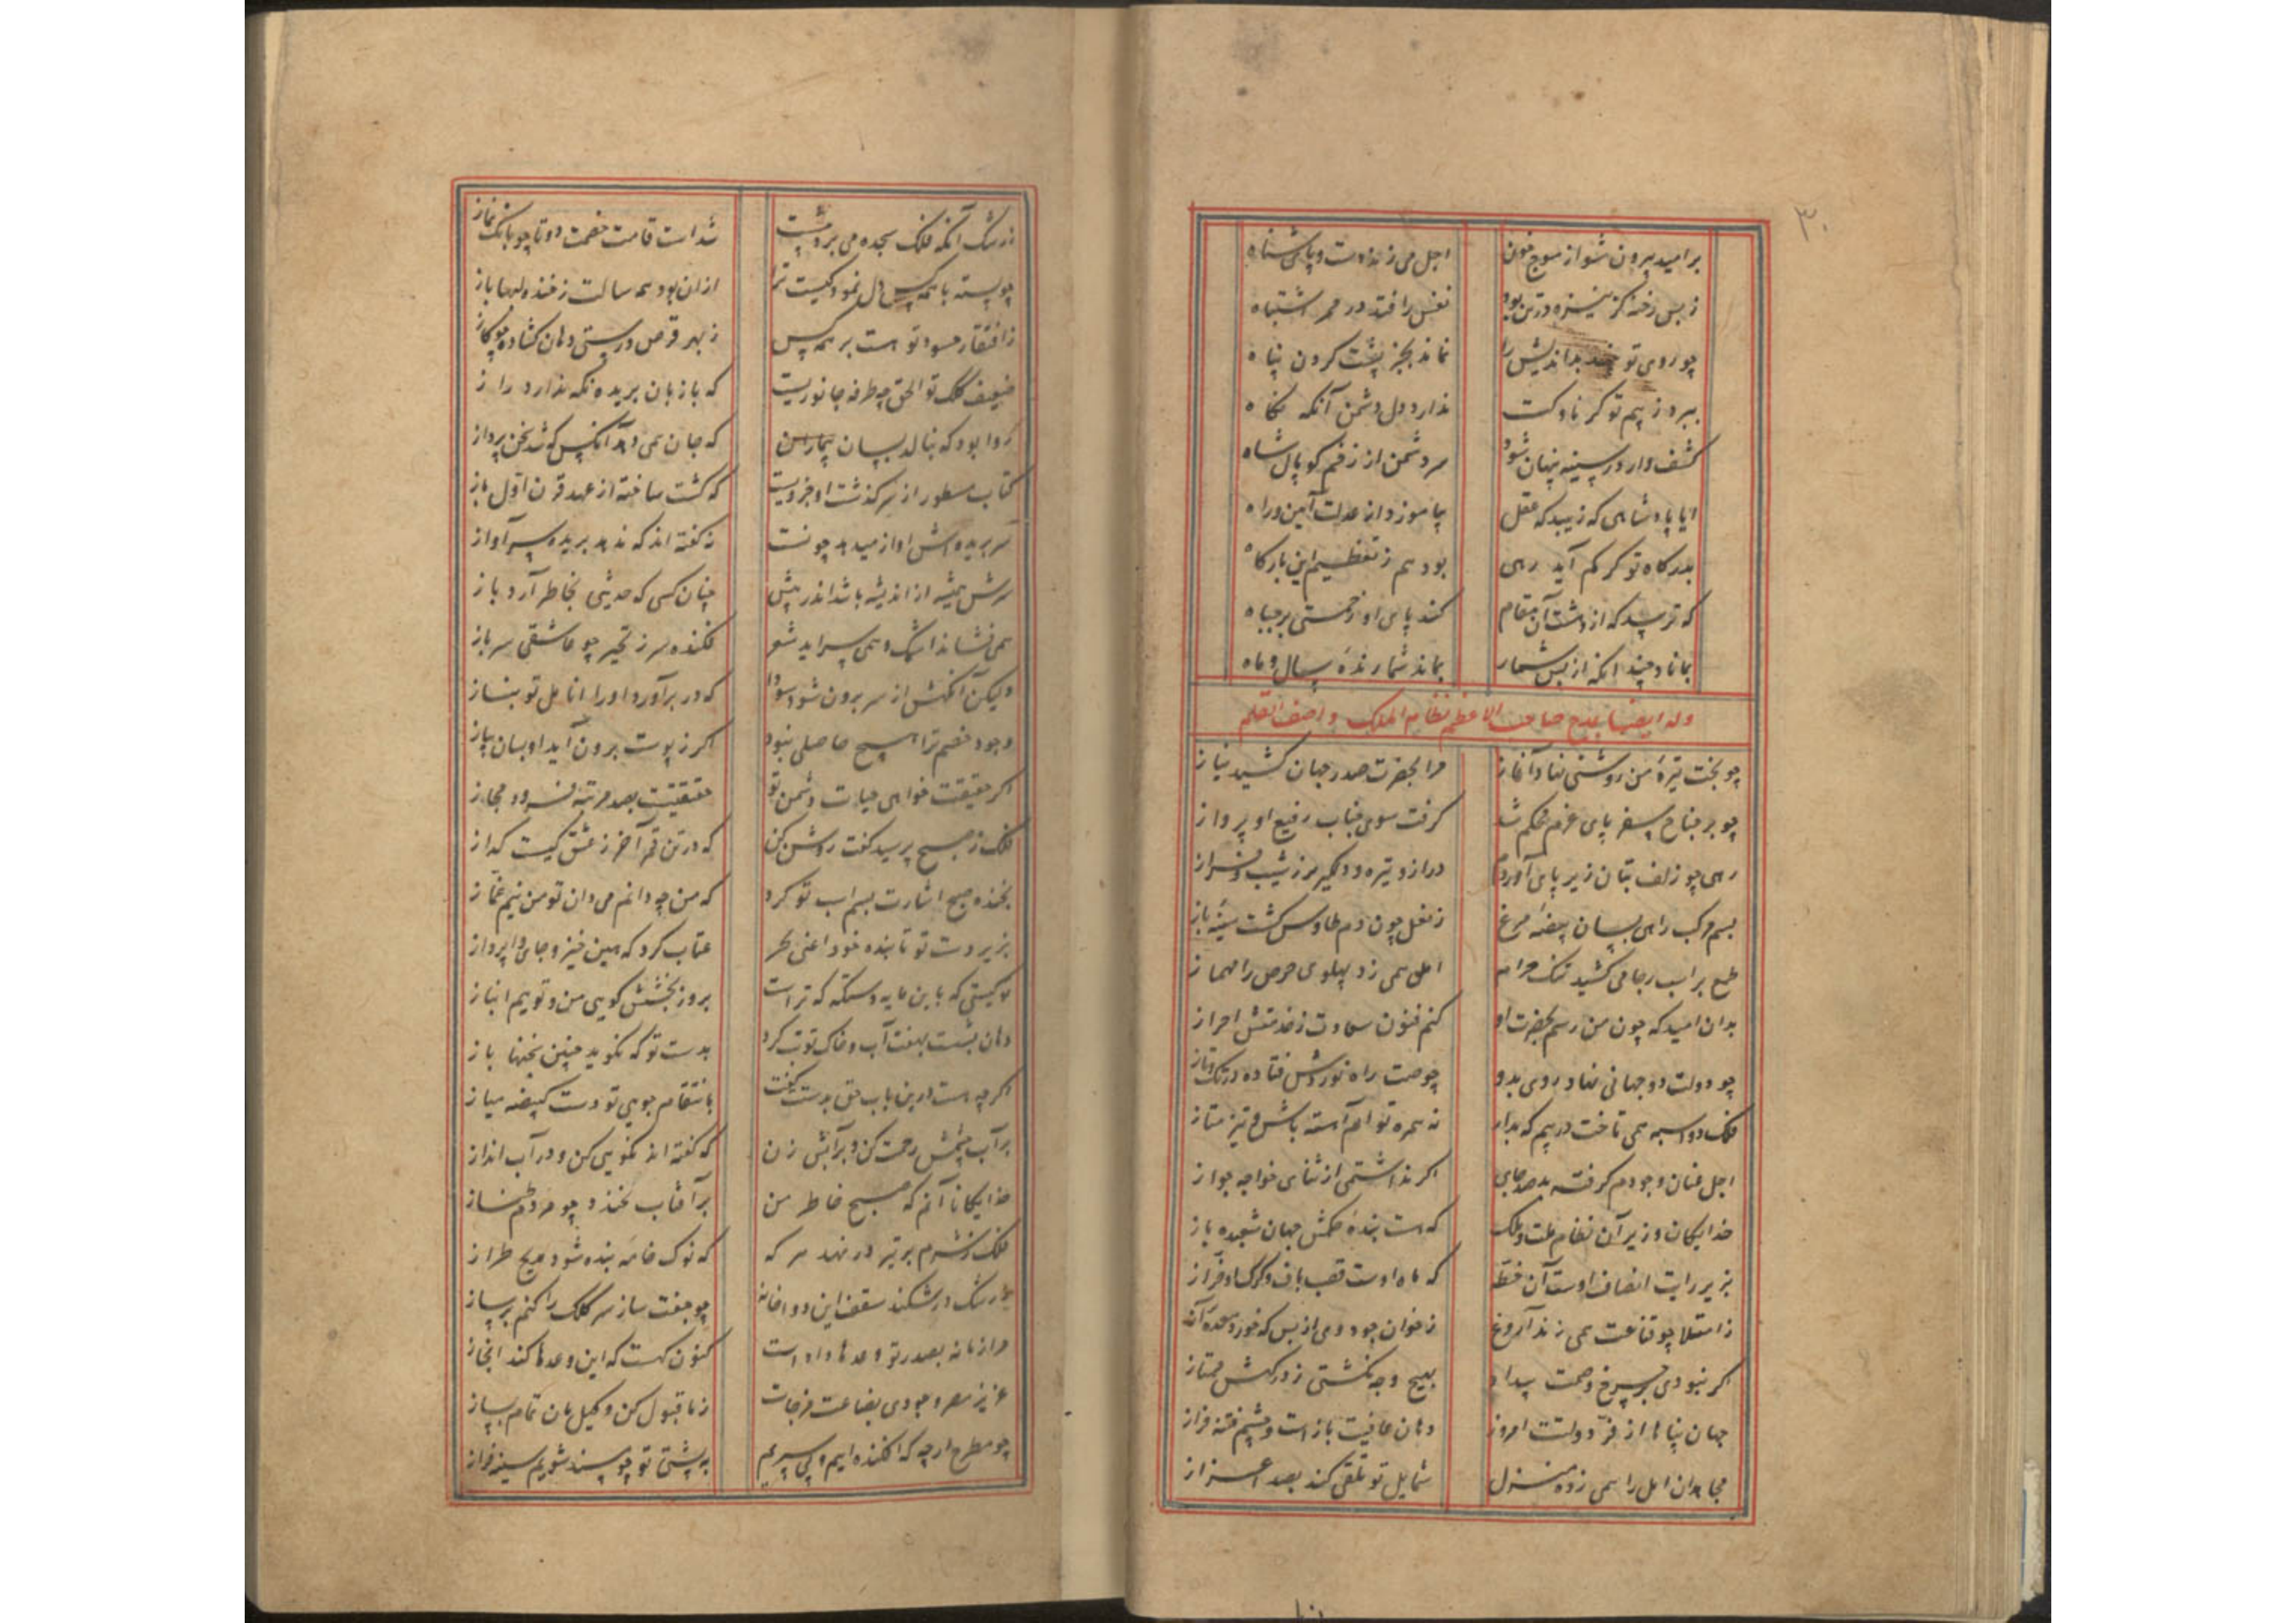 ۳۰
بر امید بیرون شو از موج خون اجل می زند دست و پای شناه
ز بس رخنه کز نیزه در تن بود نفس را فتد در ممر اشتباه
چو روی تو بیند بداندیش را نماند بجز پشت کردن پناه
ببرد ز بیم تو کر ناوکت ندارد دل دشمن آنکه نکاه
کشف وار در سینه پنهان شود سر دشمن از زخم کوپال شاه
ایا پادشاهی که زیبد که عقل بیاموزد از عدلت آیین و راه
بدرکاه تو کر کم آید رهی بود هم ز تعظیم این بارکاه
که ترسید که از دشت آن مقام کند پای او زحمتی بر جباه
بمانا دچند انکه از بس شمار بماند شمارندهٔ سال و ماه
وله ایضا یمدح صاحب الاعظم نظام الملک و اصف القلم
چو بخت تیرهٔ من روشنی نهاد آغاز مرا بحضرت صدر جهان کشید نیاز
چو بر جناح سفر پای عزم محکم شد کرفت سوی جناب رفیع او پرواز
رهی چو زلف بتان زیر پای آوردم دراز و تیره و دلکیر و پر ز شیب و فراز
بسم مرکب راهی بسان بیضهٔ مرغ ز نعل چون دم طاوس کشت سینهٔ باز
طمع بر اسب رجا می کشید تنک حرام امل همی زد پهلوی حرص را مهماز
بدان امید که چون من رسم بحضرت او کنم فنون سعادت ز خدمتش احراز
چو دولت دو جهانی نهاد روی بدو چو صیت راه نوردش فتاده در تک و تاز
فلک دو اسبه همی تاخت در پیم که بدار نه همره تو ام آهسته باش و تیز متاز
اجل عنان وجودم کرفته بد صد جای اکر نداشتمی از ثنای خواجه جواز
خدایکان وزیر آن نظام ملت و ملک که هست بندهٔ حکمش جهان شعبده باز
بزیر رایت انصاف اوست آن خطه که ماه اوست قصب باف و کرک او خراز
ز امتلا چو قناعت همی زند آروغ ز خوان جود وی از بس که خورد معدهٔ آز
اکر نبودی بر چرخ وهمت بیداد بهیچ وجه نکشتی ز درکهش ممتاز
جهان پناها از فر دولتت امروز دهان عافیت بازست و چشم فتنه فراز
مجاهدان امل را همی زده منزل شمایل تو تلقی کند بصد اعزاز
ز رشک آنکه فلک سجده می برد پیشت شد است قامت خصمت دو تا چو بانک نماز
چو پسته با همه کس دل نمود کیست ترا از ان بود همه سالت ز خنده لبها باز
ز افتقار حسود تو هست بر همه کس ز بهر قرص درستی دهان کشاده چو کاز
ضعیف کلک تو الحق چه طرفه جانوریست که باز بان بریده نکه ندارد راز
روا بود که بنالد بسان بیماران که جان همی دهد آنکس که شد سخن پرداز
کتاب مسطور از سرکذشت او جزویست که کشت ساخته از عهد قرن اول باز
سر بریده اش اواز میدهد چونست نه کفته اند که ندهد بریده سر آواز
سرش همیشه از اندیشه باشد اندر پیش چنان کسی که حدیثی بخاطر آرد باز
همی فشاند اشک و همی سراید شعر فکنده سر ز تحیر چو عاشقی سرباز
ولیکن آنکهش از سر برون شود سودا که در بر آورد او را انامل تو بناز
وجود خصم ترا هیچ حاصلی نبود اکر ز پوست برون آید او بسان پیاز
اکر حقیقت خواهی حیات دشمن تو حقیقتیست بصد مرتبه فرود مجاز
فلک ز صبح پرسید کفت روشن کن که در تن قمر آخر ز عشق کیست کداز
بخنده صبح اشارت بسم اسب تو کرد که من چو دانم می دان تو من نیم غماز
بزیر دست تو تابنده خود اعنی بحر عتاب کرد که هین خیز و جای وا پرداز
تو کیستی که باین مایه دستکه که تراست بروز بخشش کویی من و تویم انباز
دهان بشست بهفت آب و خاک توبت کرد بدست تو که نکوید چنین سخنها باز
اکرچه هست درین باب حق بدست کفت بانتقام چوبی تو دست کینه میاز
بر آب چشمش رحمت کن و بر آبش زن که کفته اند نکویی کن و در آب انداز
خدایکانا آنم که صبح خاطر من بر آفتاب بخندد چو مردم طناز
فلک ز شرم بر تیر در نهد سر که که نوک خامهٔ بنده شود مدیح طراز
ز رشک در شکند سقف این دو اخانه چو جفت ساز سر کلک را کنم بر ساز
مرا زمانه بصدر تو وعدها داد است کنون کهست که این وعدها کند انجاز
عزیز مصر وجودی بضاعت مزجات ز ما قبول کن و کیل مان تمام بساز
چو مطرح ارچه که افکنده ایم و پی سپریم به پشتی تو چو مسند شویم سینه فراز